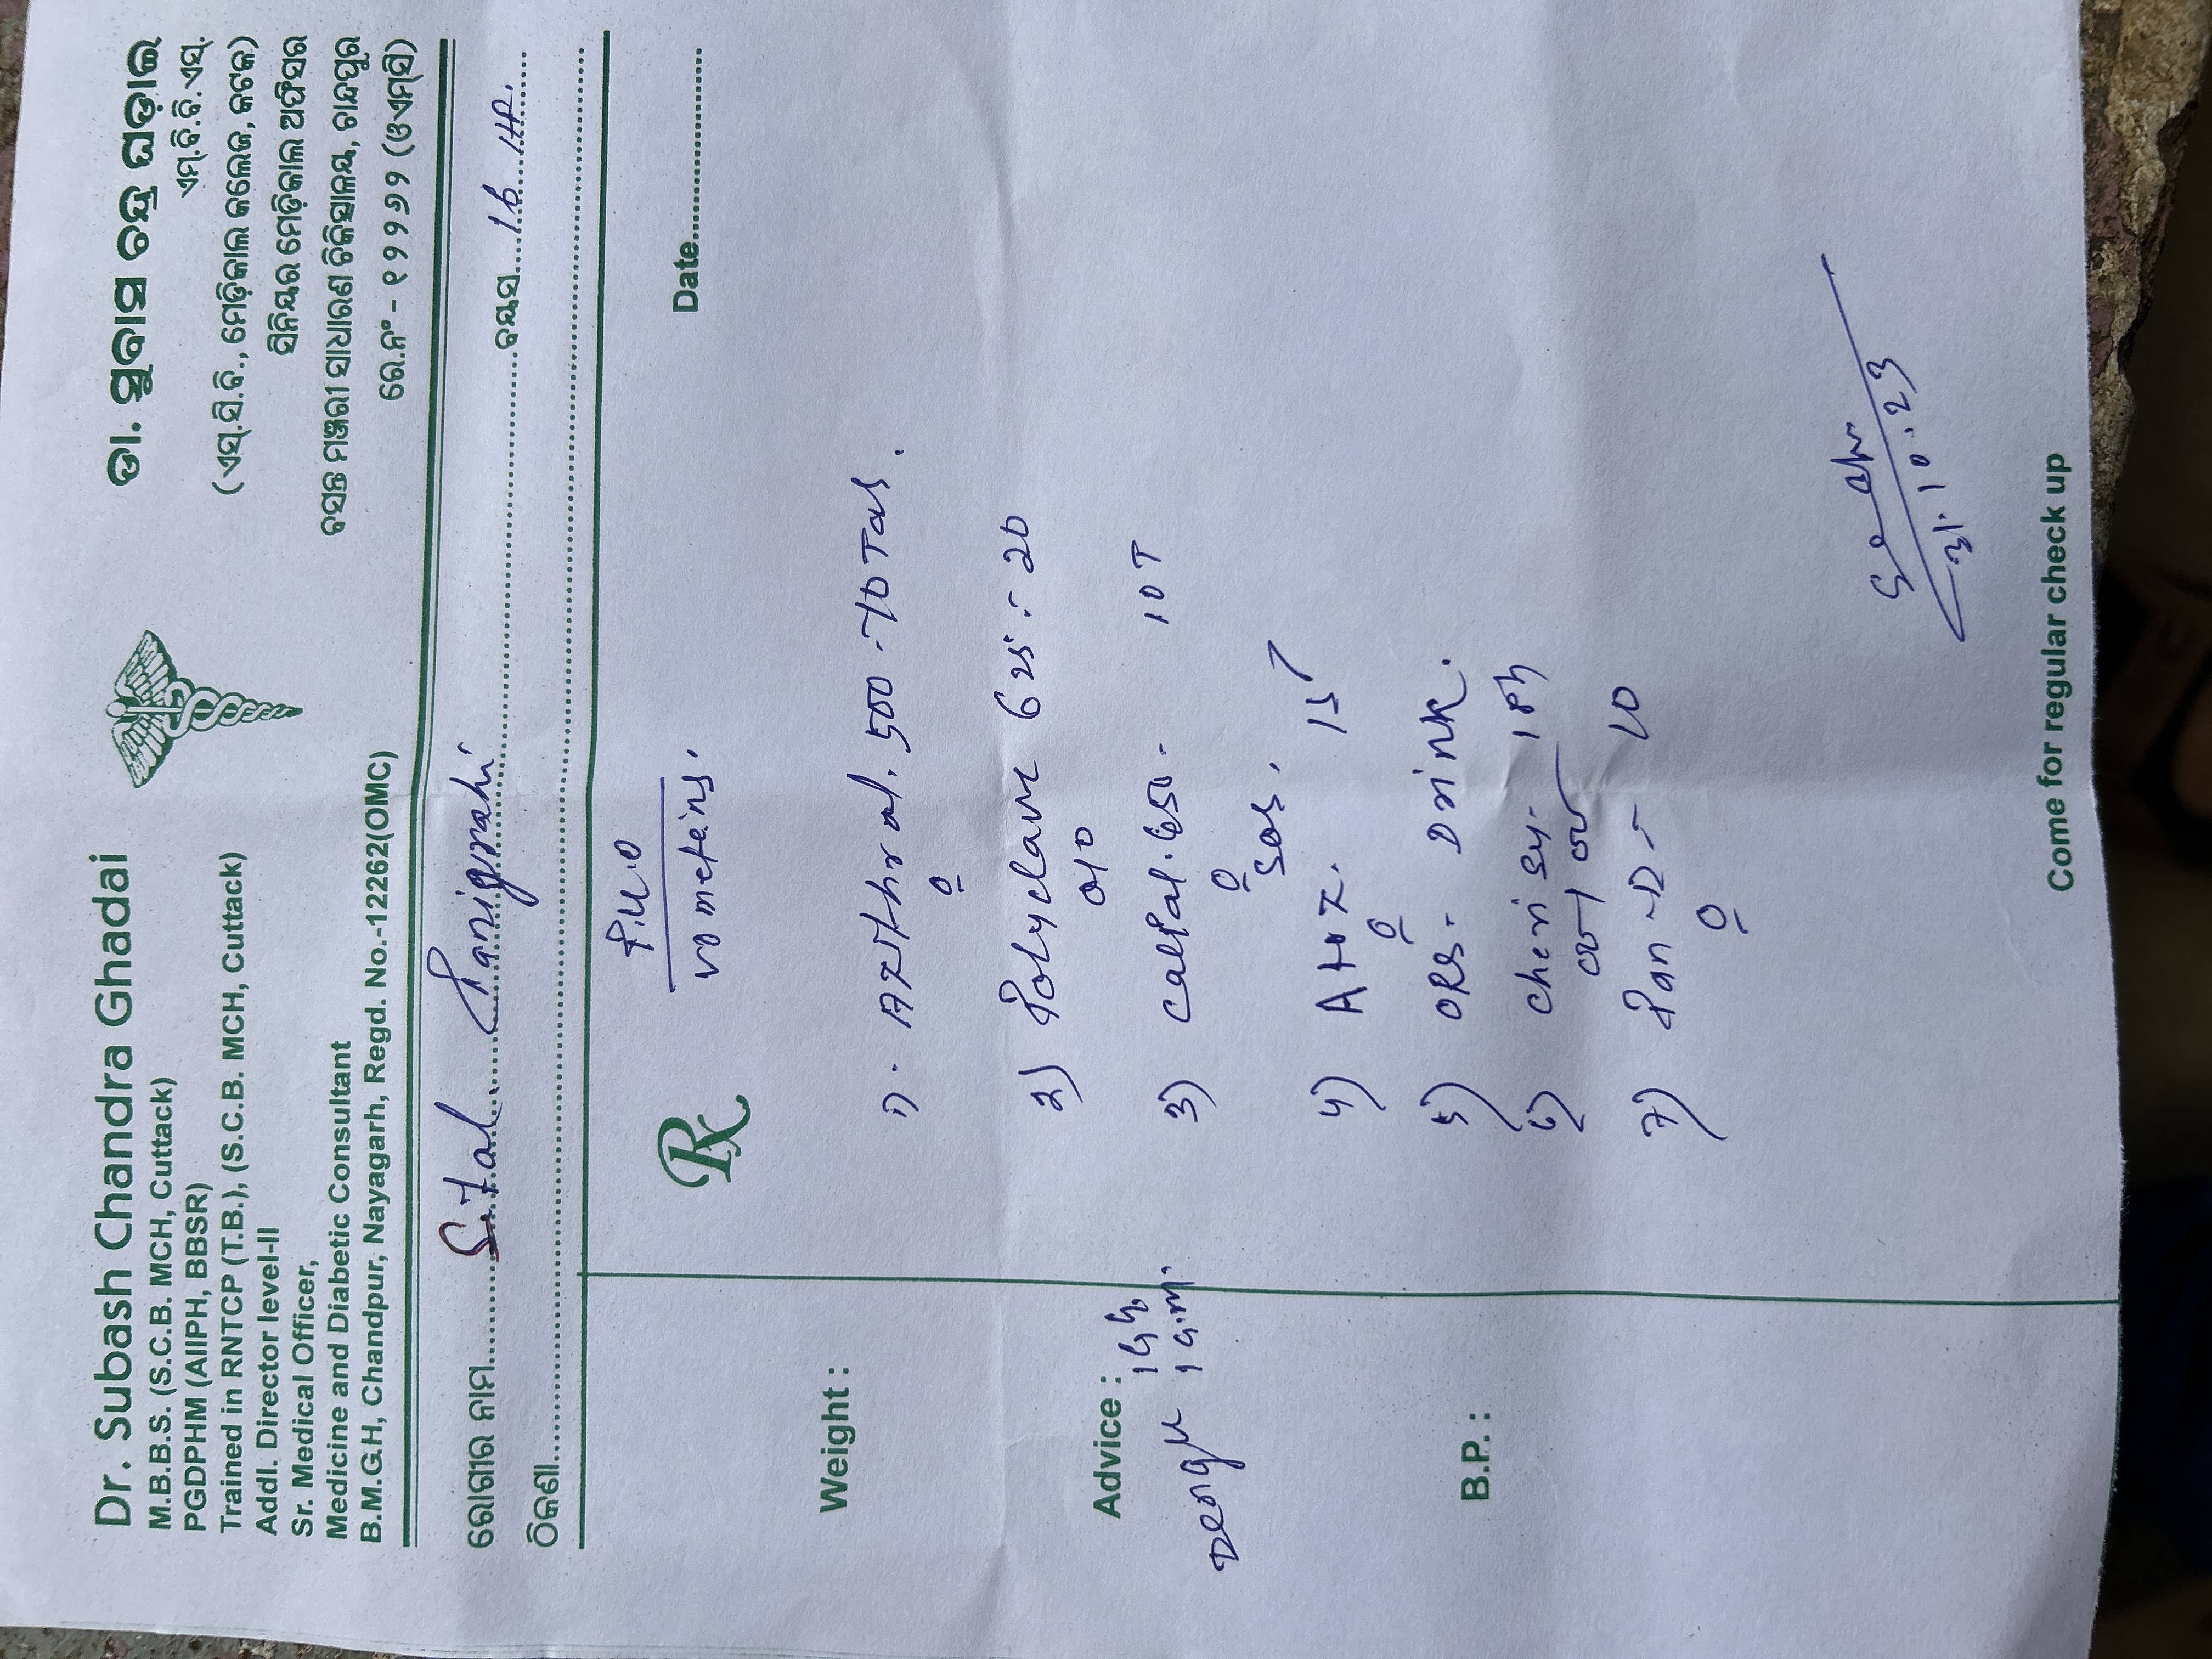 Dr. Subash Chandra Ghadai
M.B.B.S. (S.C.B. MCH, Cuttack)
PGDPHM (AIIPH, BBSR)
Trained in RNTCP (T.B.), (S.C.B. MCH, Cuttack)
Addl. Director level-II
Sr. Medical Officer,
Medicine and Diabetic Consultant
B.M.G.H, Chandpur, Nayagarh, Regd. No.-12262(OMC)
ଡା. ସୁବାସ ଚନ୍ଦ୍ର ଘଡ଼ାଇ
ଏମ୍.ବି.ବି.ଏସ୍.
(ଏସ୍.ସି.ବି., ମେଡ଼ିକାଲ କଲେଜ, କଟକ)
ସିନିୟର ମେଡ଼ିକାଲ ଅଫିସର
ବସନ୍ତ ମଞ୍ଜରୀ ସାଧାରଣ ଚିକିତ୍ସାଳୟ, ଚାନ୍ଦପୁର
ରେ.ନଂ - ୧୨୨୬୨ (ଓଏମ୍‌ସି)
ରୋଗୀର ନାମ Sital Panigrahi ବୟସ 16
ଠିକଣା
Rx
Date
P.U.O
Weight :
1) 500 - 10 Tab.
2) Polyclav 625 - 20
Advice :
3) Calpal. 650 - 10 T
SOS.
Dengu
4) 15
5) ORS - Drink.
B.P. :
6) Cheri Sy - 1 ph
7) Pan-D - 10
31.10.23
Come for regular check up